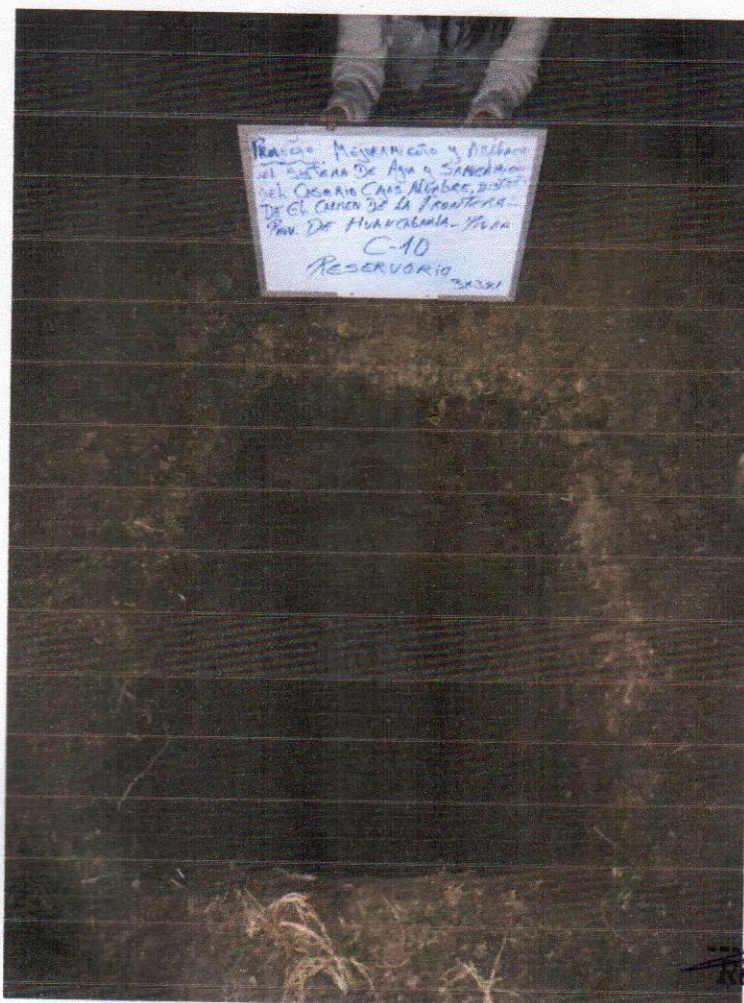 Proyecto: Mejoramiento y
del Sistema De Agua y Saneamiento
del Caserio
De El Carmen De La Frontera -
Prov. De Huancabamba - Piura
C-10
Reservorio
3x3x1